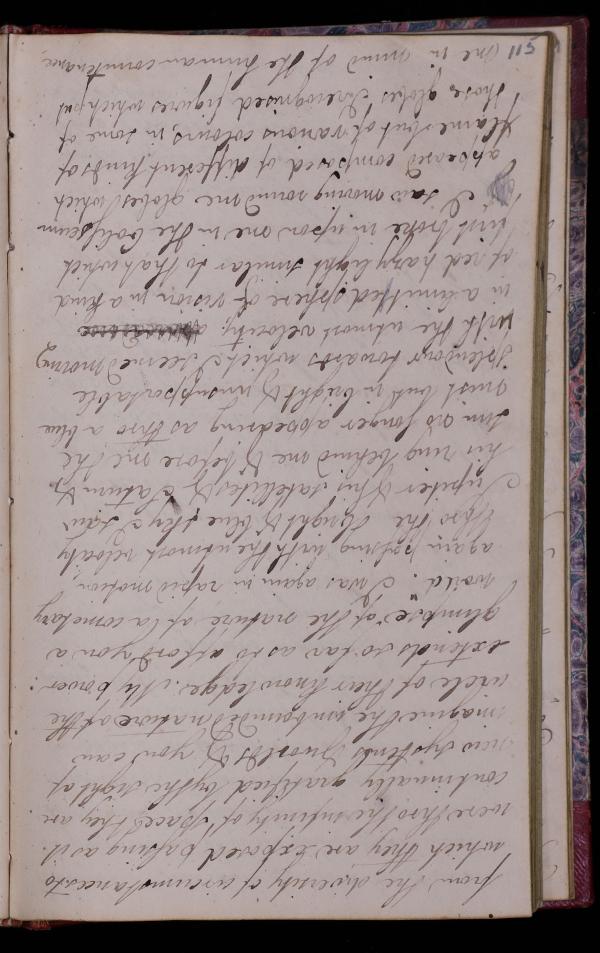 from the diversity of circumstances to
which they are exposed passing as it
were thro the infinity of space they are
continually gratified by the sight of
new systems & worlds & you can
imagine the unbounded nature of the
circle of their knowledge. My power
extends so far as to afford you a
glimpse of the nature of a cometary
world. I was again in rapid motion,
again passing with the utmost velocity
thro the bright & blue sky & saw
Jupiter & his satellites & Saturn &
his ring behind me & before me the
sun no longer appearing as thro a blue
mist but in bright & unsupportable
splendour towards which I seemed moving
with the utmost velocity;
in a limited sphere of vision in a kind
of red hazy light similar to that which
first broke in upon me in the Coliseum
I saw moving round me globes which
appeared composed of different kinds of
flame & but of various colours, in some of
those globes I recognised figures which put
me in mind of the human countenance
115